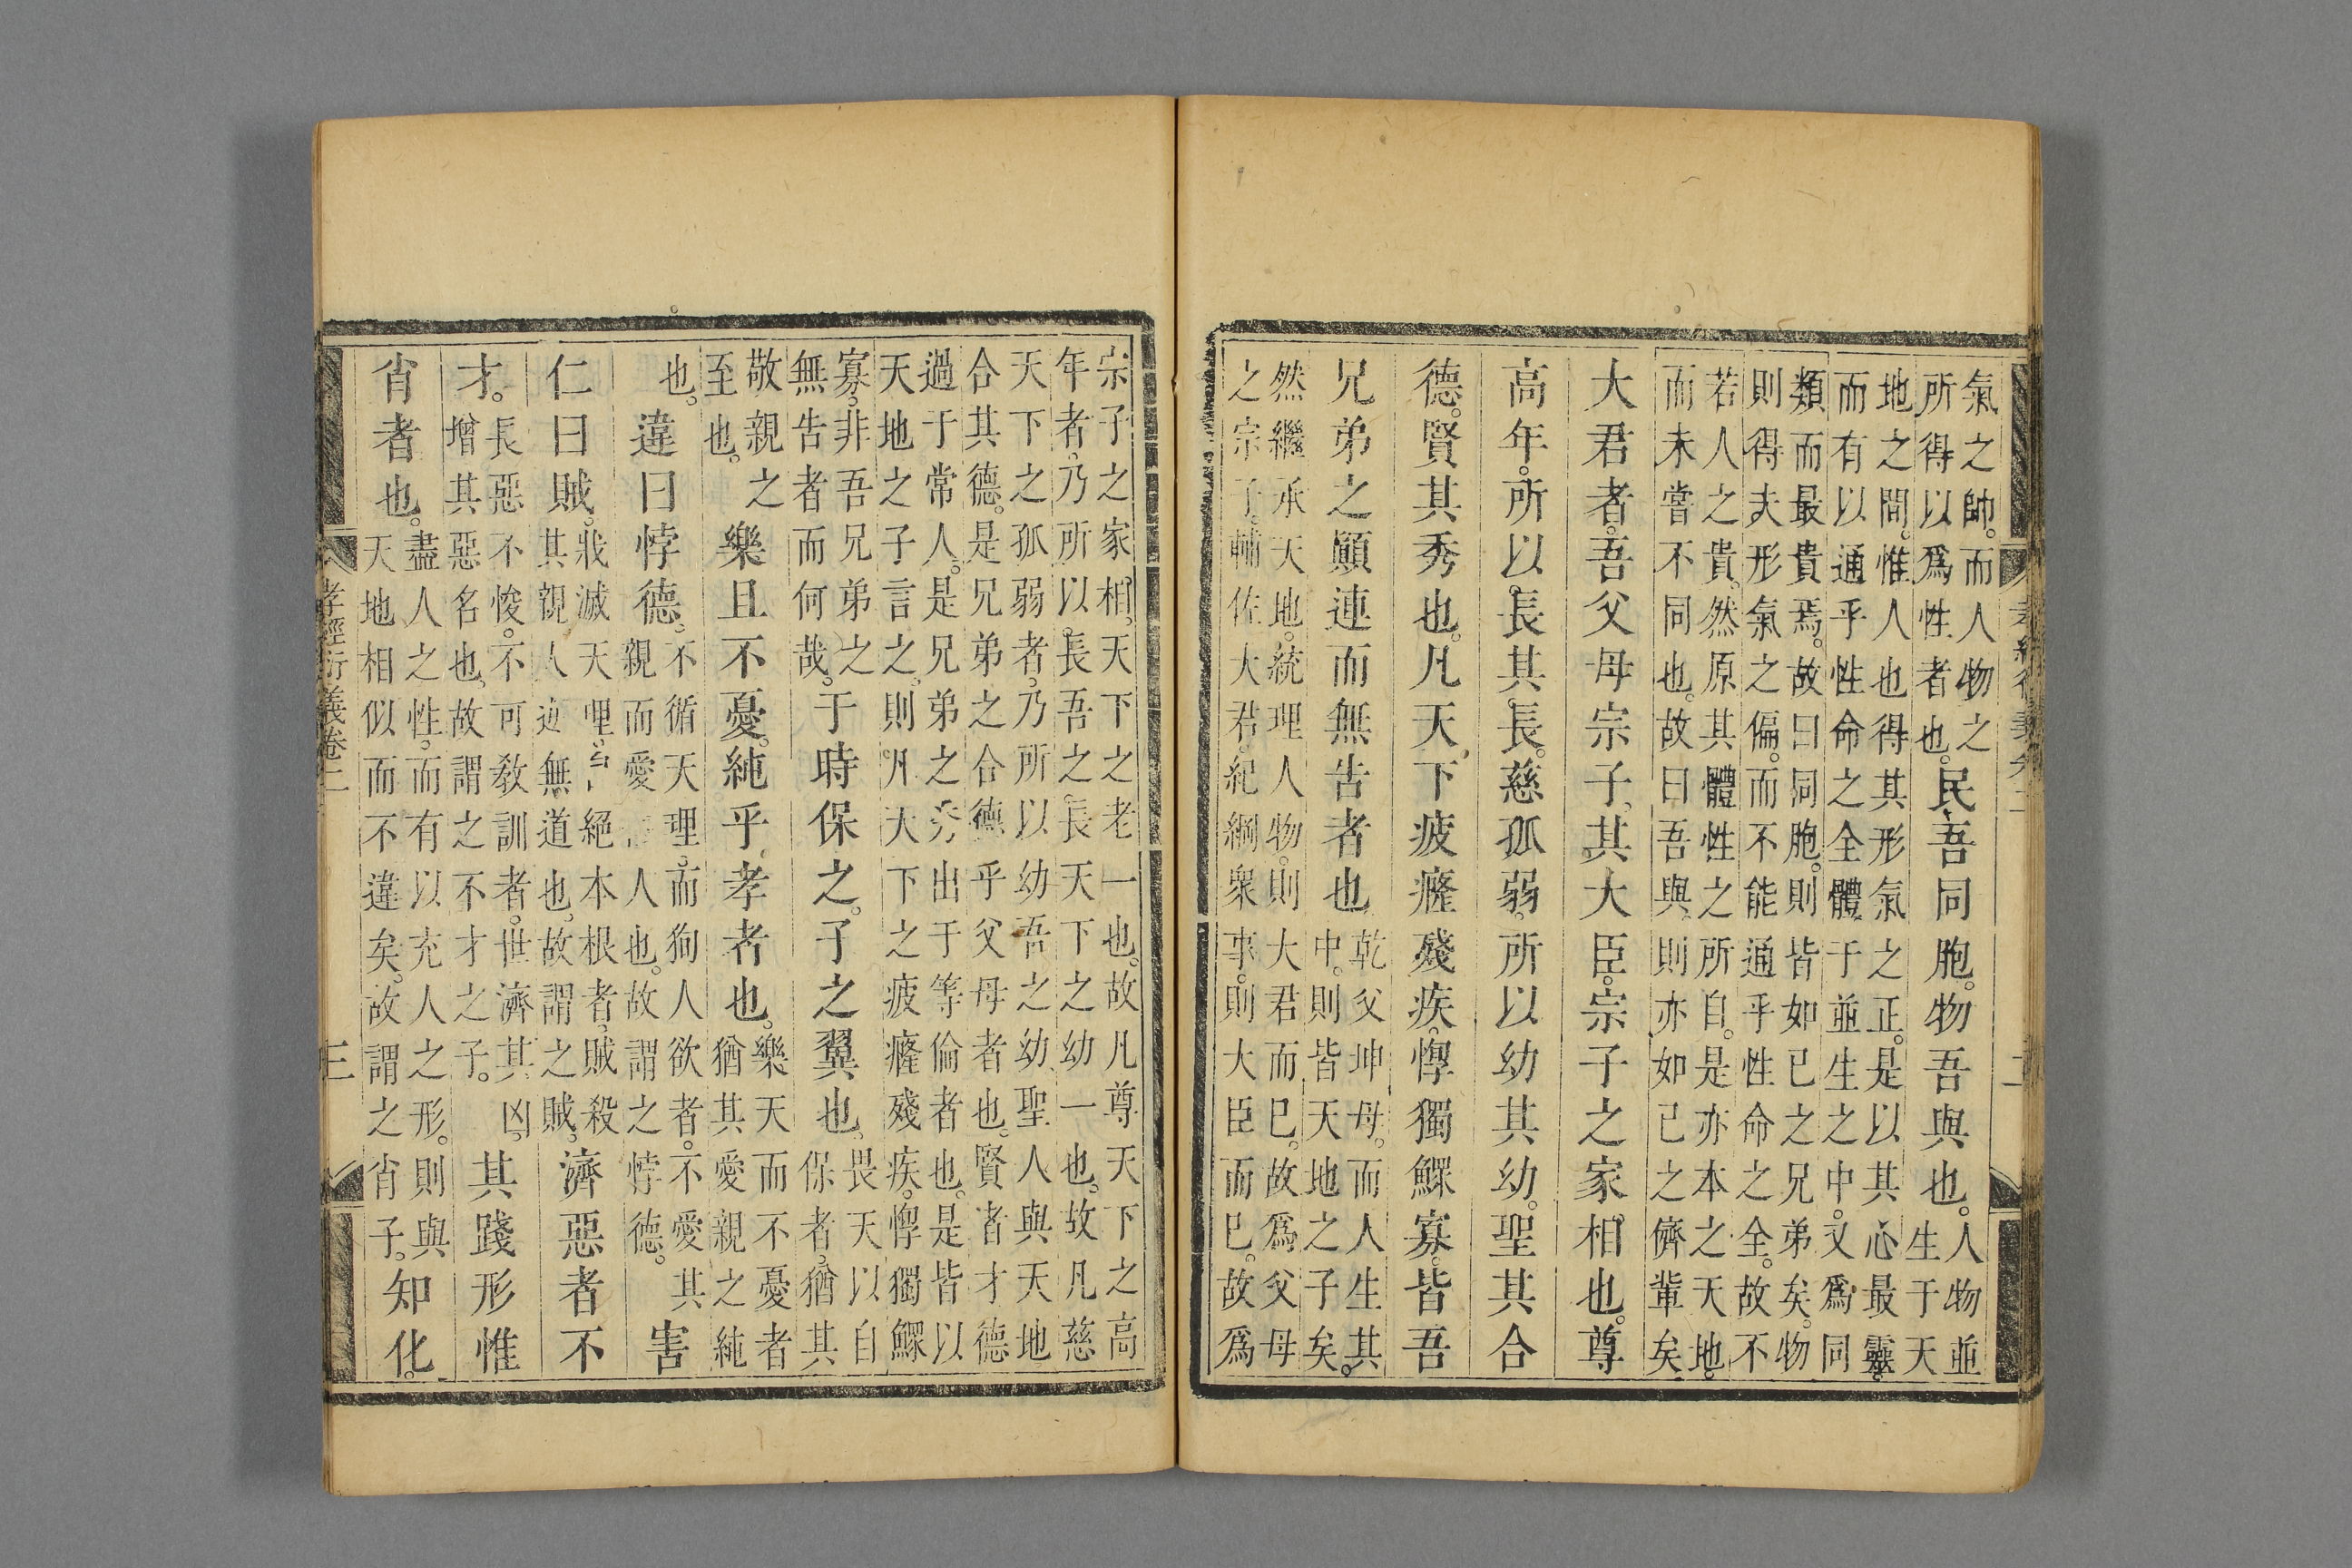 氣之帥。而人物之
所得以爲性者也。
民吾同胞。物吾與也。
人物並
生于天
地之間。惟人也得其形氣之正。是以其心最靈。
而有以通乎性命之全體。于並生之中。又爲同
類而最貴焉。故曰同胞。則皆如己之兄弟矣。物
則得夫形氣之偏。而不能通乎性命之全。故不
若人之貴。然原其體性之所自。是亦本之天地。
而未嘗不同也。故曰吾與。則亦如己之儕輩矣。
大君者。吾父母宗子。其大臣。宗子之家相也。尊
高年。所以長其長。慈孤弱。所以幼其幼。聖其合
德。賢其秀也。凡天下疲癃殘疾。惸獨鰥寡。皆吾
兄弟之顚連而無告者也
乾父坤母。而人生其
中。則皆天地之子矣。
然繼承天地。統理人物。則大君而已。故爲父母
之宗子。輔佐大君。紀綱衆事。則大臣而已。故爲
宗子之家相。天下之老一也。故凡尊天下之高
年者。乃所以長吾之長。天下之幼一也。故凡慈
天下之孤弱者。乃所以幼吾之幼。聖人與天地
合其德。是兄弟之合德乎父母者也。賢者才德
過于常人。是兄弟之秀出于等倫者也。是皆以
天地之子言之。則凡天下之疲癃殘疾。惸獨鰥
寡。非吾兄弟之
無告者而何哉。
于時保之。子之翼也。
畏天以自
保者。猶其
敬親之
至也。
樂且不憂。純乎孝者也。
樂天而不憂者
猶其愛親之純
也。
違曰悖德。
不循天理。而狥人欲者。不愛其
親而愛人也。故謂之悖德。
害
仁曰賊。
戕滅天理。絕本根者。賊殺
其親人逆無道也。故謂之賊。
濟惡者不
才。
長惡不悛。不可敎訓者。世濟其凶。
增其惡名也。故謂之不才之子。
其踐形惟
肖者也。
盡人之性。而有以充人之形。則與
天地相似而不違矣。故謂之肖子。
知化。
孝經衍義卷二
三